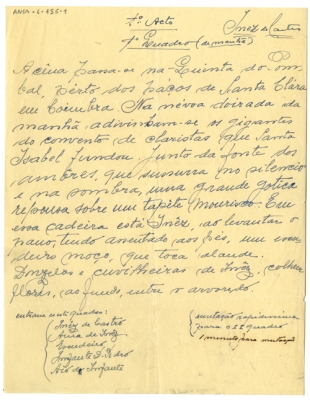 1º Acto
Inêz de Castro
1º Quadro (de manhã)
A cêna passa-se na Quinta do Pom-
bal, perto dos paços de Santa Clara
em Coimbra. Na névoa doirada da
manhã, adivinham-se os gigantes
do convento de claristas que Santa
Isabel fundou. Junto da fonte dos
amôres, que sussurra no silencio
e na sombra, uma grande gotica
repousa sobre um tapête Mourisco. Em
essa cadeira está Inêz, ao levantar o
pano, tendo assentado aos pés, um escu-
deiro moço, que toca alaúde.
Donzelas e cuvilheiras de Inêz, colhem
flôres, ao fundo, entre o arvoredo.
entram neste quadro:
Inêz de Castro
Aura de Inêz
Escudeiro
Infante D. Pedro
Aio do Infante
mutação rapidissima
para o 2º quadro
1 minuto para mutação